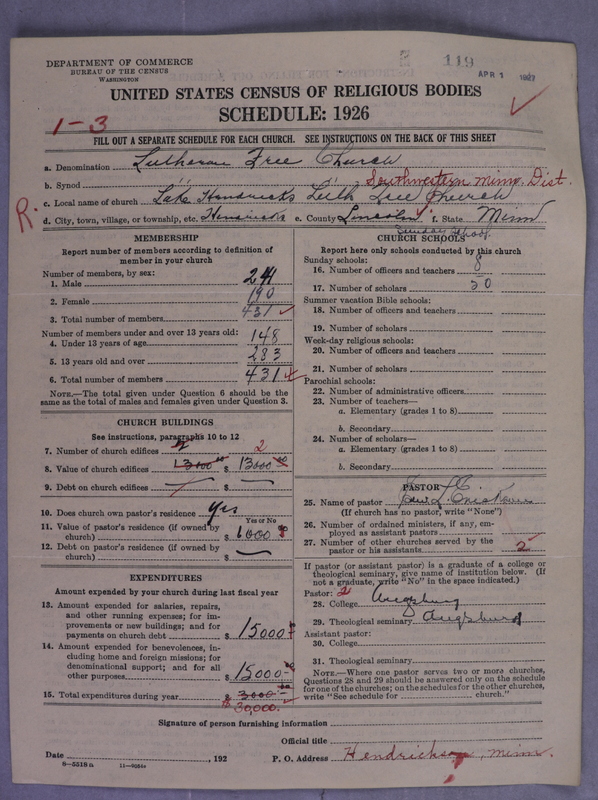 DEPARTMENT OF COMMERCE
BUREAU OF THE CENSUS
WASHINGTON
119
APR 1 1927
UNITED STATES CENSUS OF RELIGIOUS BODIES
SCHEDULE: 1926
1-3
FILL OUT A SEPARATE SCHEDULE FOR EACH CHURCH. SEE INSTRUCTIONS ON THE BACK OF THIS SHEET
a. Denomination Lutheran Free Church
b. Synod Southwestern Minn. Dist.
c. Local name of church Lake Hendricks Luth Free Church
R.
d. City, town, village, or township, etc. Hendricks e. County Lincoln f. State Minn
MEMBERSHIP
Report number of members according to definition of member in your church
Number of members, by sex:
1. Male 241
2. Female 190
3. Total number of members 431
Number of members under and over 13 years old:
4. Under 13 years of age 148
5. 13 years old and over 283
6. Total number of members 431
NOTE.—The total given under Question 6 should be the same as the total of males and females given under Question 3.
CHURCH BUILDINGS
See instructions, paragraphs 10 to 12
7. Number of church edifices 2
8. Value of church edifices 13000 $ 13000
9. Debt on church edifices $
10. Does church own pastor's residence yes
Yes or No
11. Value of pastor's residence (if owned by church) $ 6000
12. Debt on pastor's residence (if owned by church) $
EXPENDITURES
Amount expended by your church during last fiscal year
13. Amount expended for salaries, repairs, and other running expenses; for improvements or new buildings; and for payments on church debt $ 15000
14. Amount expended for benevolences, including home and foreign missions; for denominational support; and for all other purposes $ 15000
15. Total expenditures during year $ 3000
$ 30,000.
CHURCH SCHOOLS
Sunday School
Report here only schools conducted by this church
Sunday schools:
16. Number of officers and teachers 8
17. Number of scholars 50
Summer vacation Bible schools:
18. Number of officers and teachers
19. Number of scholars
Week-day religious schools:
20. Number of officers and teachers
21. Number of scholars
Parochial schools:
22. Number of administrative officers
23. Number of teachers—
a. Elementary (grades 1 to 8)
b. Secondary
24. Number of scholars—
a. Elementary (grades 1 to 8)
b. Secondary
PASTOR
25. Name of pastor
(If church has no pastor, write "None")
26. Number of ordained ministers, if any, employed as assistant pastors
27. Number of other churches served by the pastor or his assistants 2
If pastor (or assistant pastor) is a graduate of a college or theological seminary, give name of institution below. (If not a graduate, write "No" in the space indicated.)
Pastor: 2
28. College Augsburg
29. Theological seminary Augsburg
Assistant pastor:
30. College
31. Theological seminary
NOTE.—Where one pastor serves two or more churches, Questions 28 and 29 should be answered only on the schedule for one of the churches; on the schedules for the other churches, write "See schedule for church."
Signature of person furnishing information
Official title
Date , 192 P. O. Address Hendricks, Minn.
8-5518 a